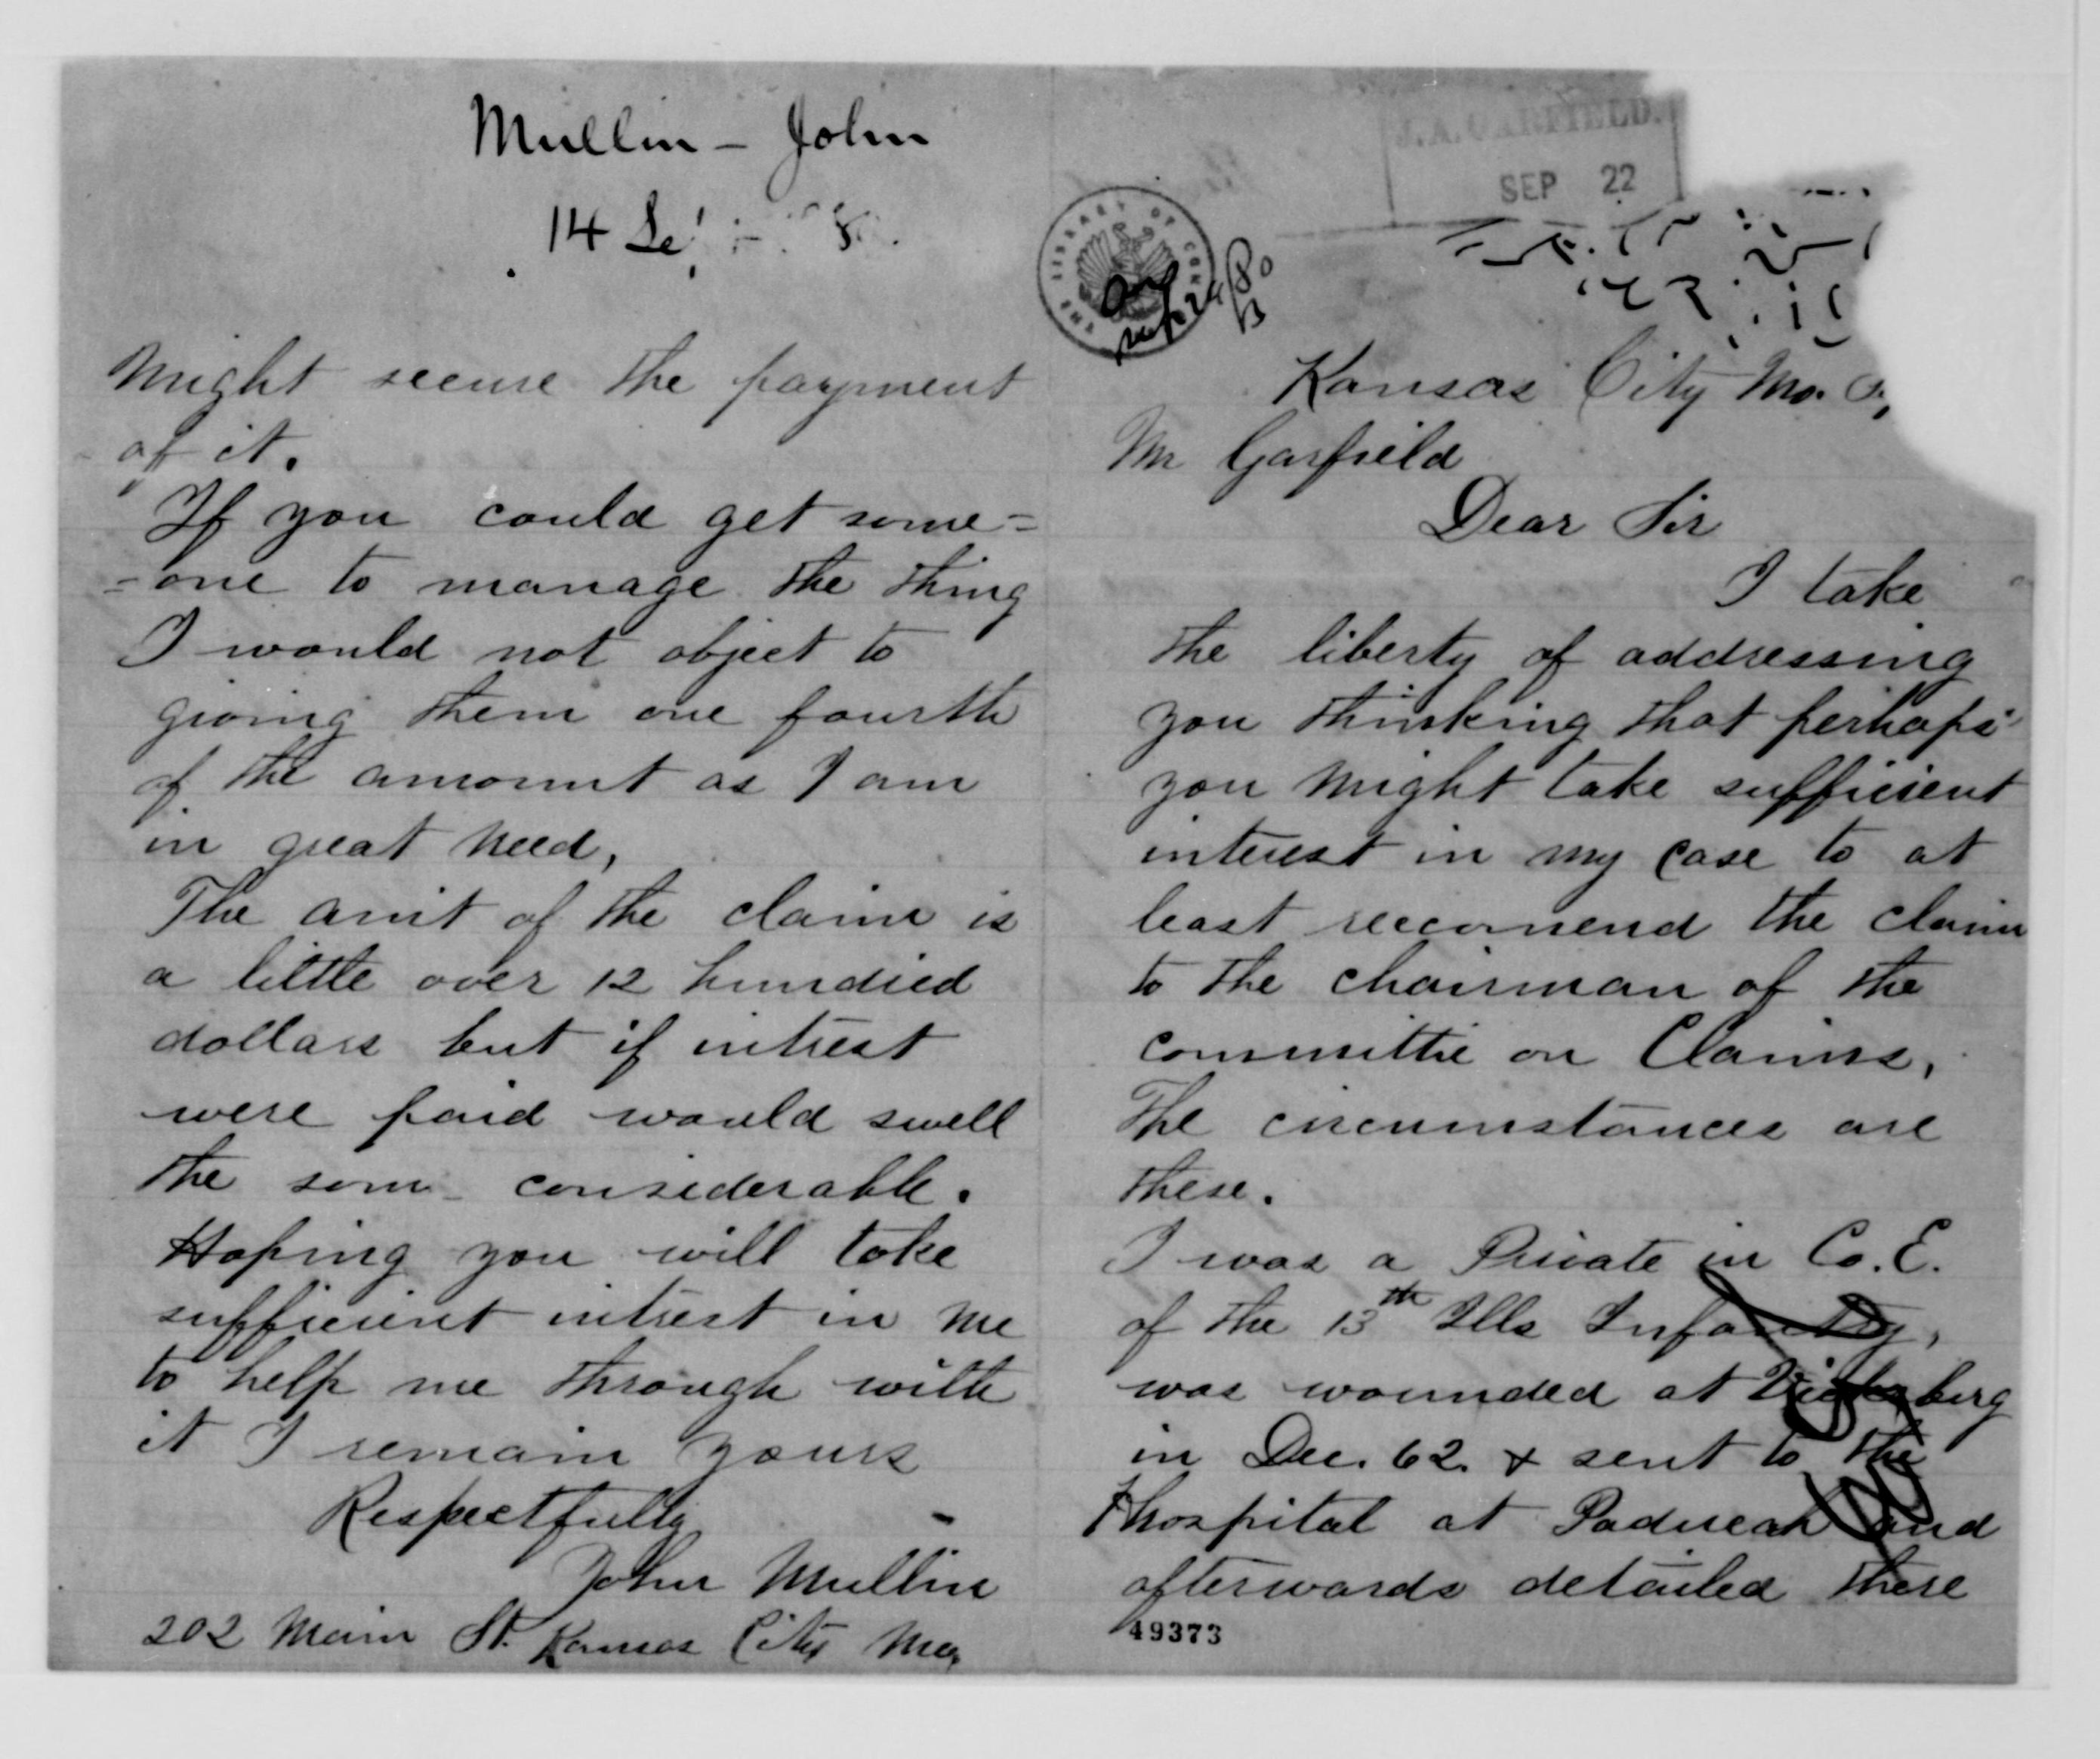 Mullin - John
14
might secure the payment
of it.
If you could get some=
=one to manage the thing
I would not object to
giving them one fourth
of the amount as I am
in great need,
The amt of the claim is
a little over 12 hundred
dollars but if intrest
were paid would swell
the som considerable.
Hoping you will take
sufficient intrest in me
to help me through with
it I remain yours
Respectfully
John Mullin
202 Main St. Kansas City Mo,
J. A. GARFIELD.
SEP 22
THE LIBRARY OF CON
Kansas City Mo.
Mr Garfield
Dear Sir
I take
the liberty of addressing
you thinking that perhaps
you might take sufficient
interest in my case to at
least reccomend the claim
to the chairman of the
committie on Claims,
The circumstances are
these.
I was a Private in Co. E.
of the 13th Ills Infantry,
was wounded at Vicksburg
in Dec. 62. & sent to the
hospital at Paducah and
afterwards detailed there
49373